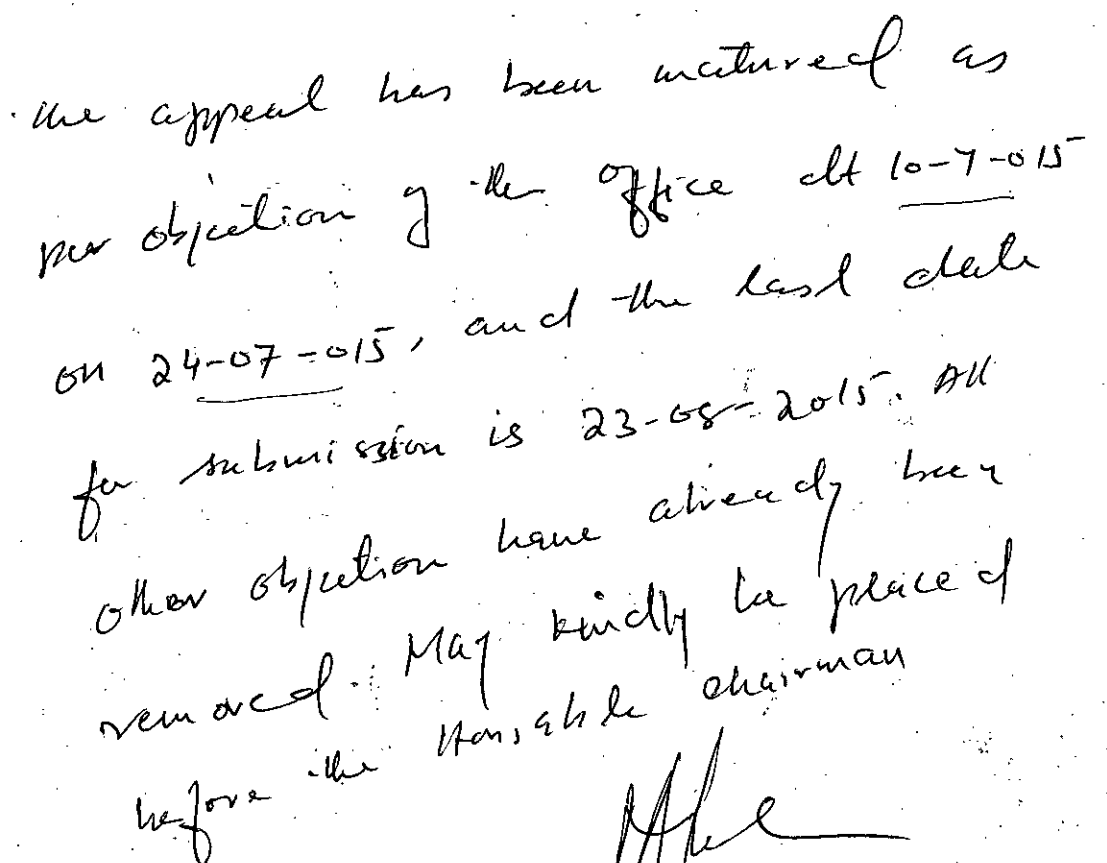 the appeal has been matured as
per objection of the office dt 10-7-015
on 24-07-015, and the last date
for submission is 23-08-2015. All
other objection have already been
removed. May kindly be placed
before the Honsable chairman